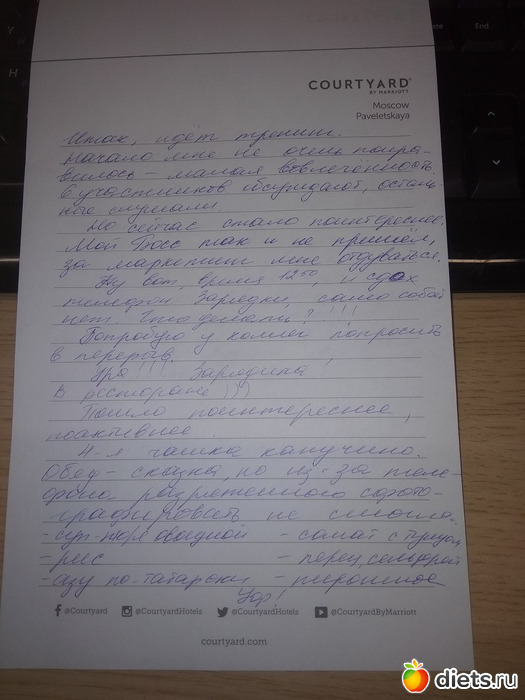 End
COURTYARD®
BY MARRIOTT
Moscow
Paveletskaya
Итак, идёт тренинг.
Начало мне не очень понра-
вилось – малая вовлечённость.
6 участников обсуждают, осталь-
ные слушали.
Но сейчас стало поинтереснее.
Мой Босс так и не пришёл,
за маркетинг мне отдуваться.
Ну вот, время 12⁵⁰, и сдох
телефон. Зарядки, само собой
нет. Что делать? !!!
Попробую у коллег попросить
в перерыв.
Ура!!! Зарядила
в ресторане )))
Пошло поинтереснее,
поактивнее.
4-я чашка капучино.
Обед – сказка, но из-за теле-
фона разряженного сфото-
графировать не смогла.
- суп-пюре - салат с тунцом
- рис - перец, сельдерей
- азу по-татарски - пирожное
Ур!
@Courtyard @CourtyardHotels @CourtyardHotels @CourtyardByMarriott
courtyard.com
diets.ru